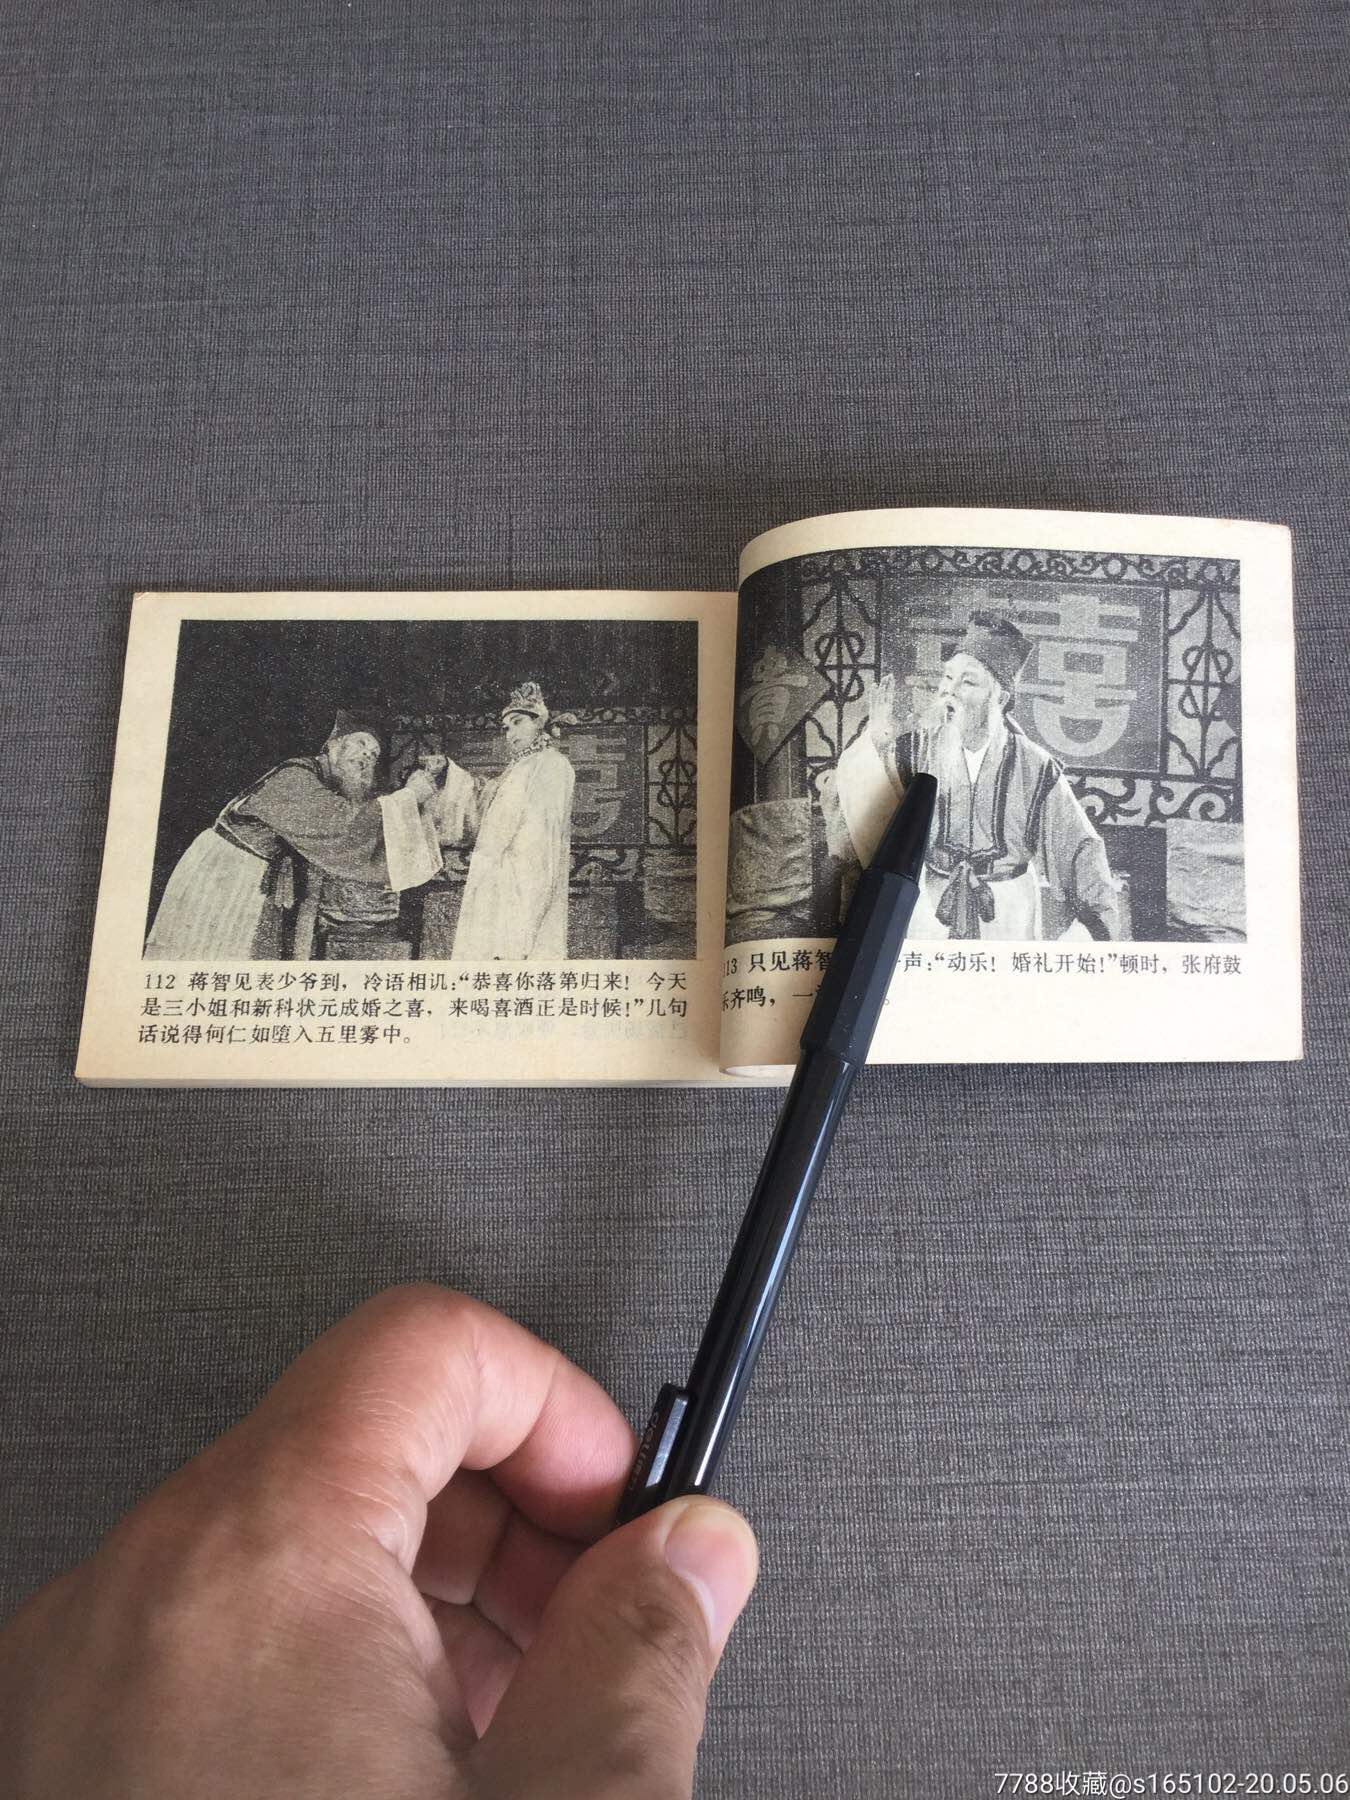 112 蒋智见表少爷到，冷语相讥：“恭喜你落第归来！今天
是三小姐和新科状元成婚之喜，来喝喜酒正是时候！”几句
话说得何仁如堕入五里雾中。
喜
喜
13 只见蒋智 声：“动乐！婚礼开始！”顿时，张府鼓
乐齐鸣，一
7788收藏@s165102-20.05.06